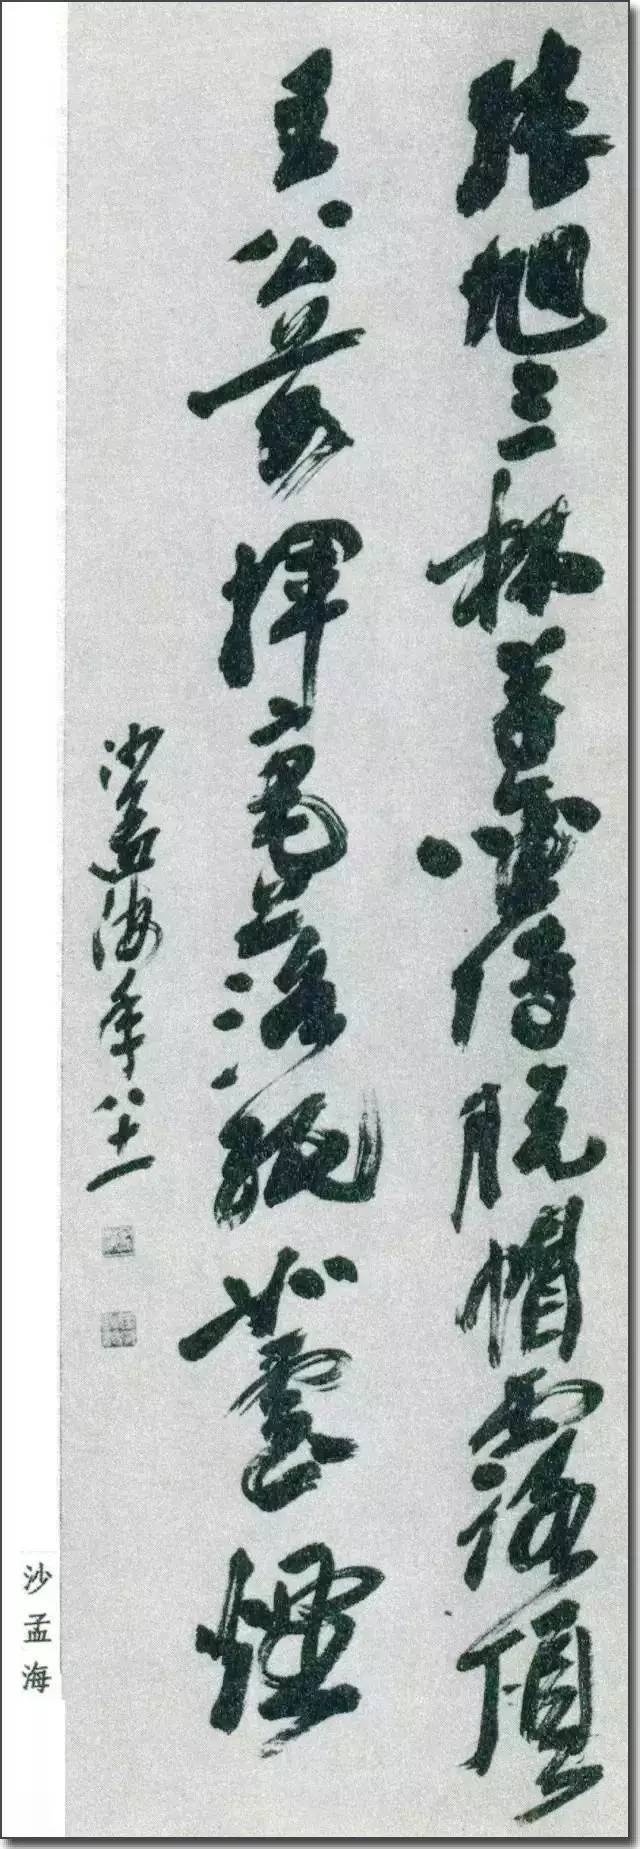 張旭三杯草聖傳脫帽露頂
王公前揮毫落紙如雲煙
沙孟海年八十一
沙孟海